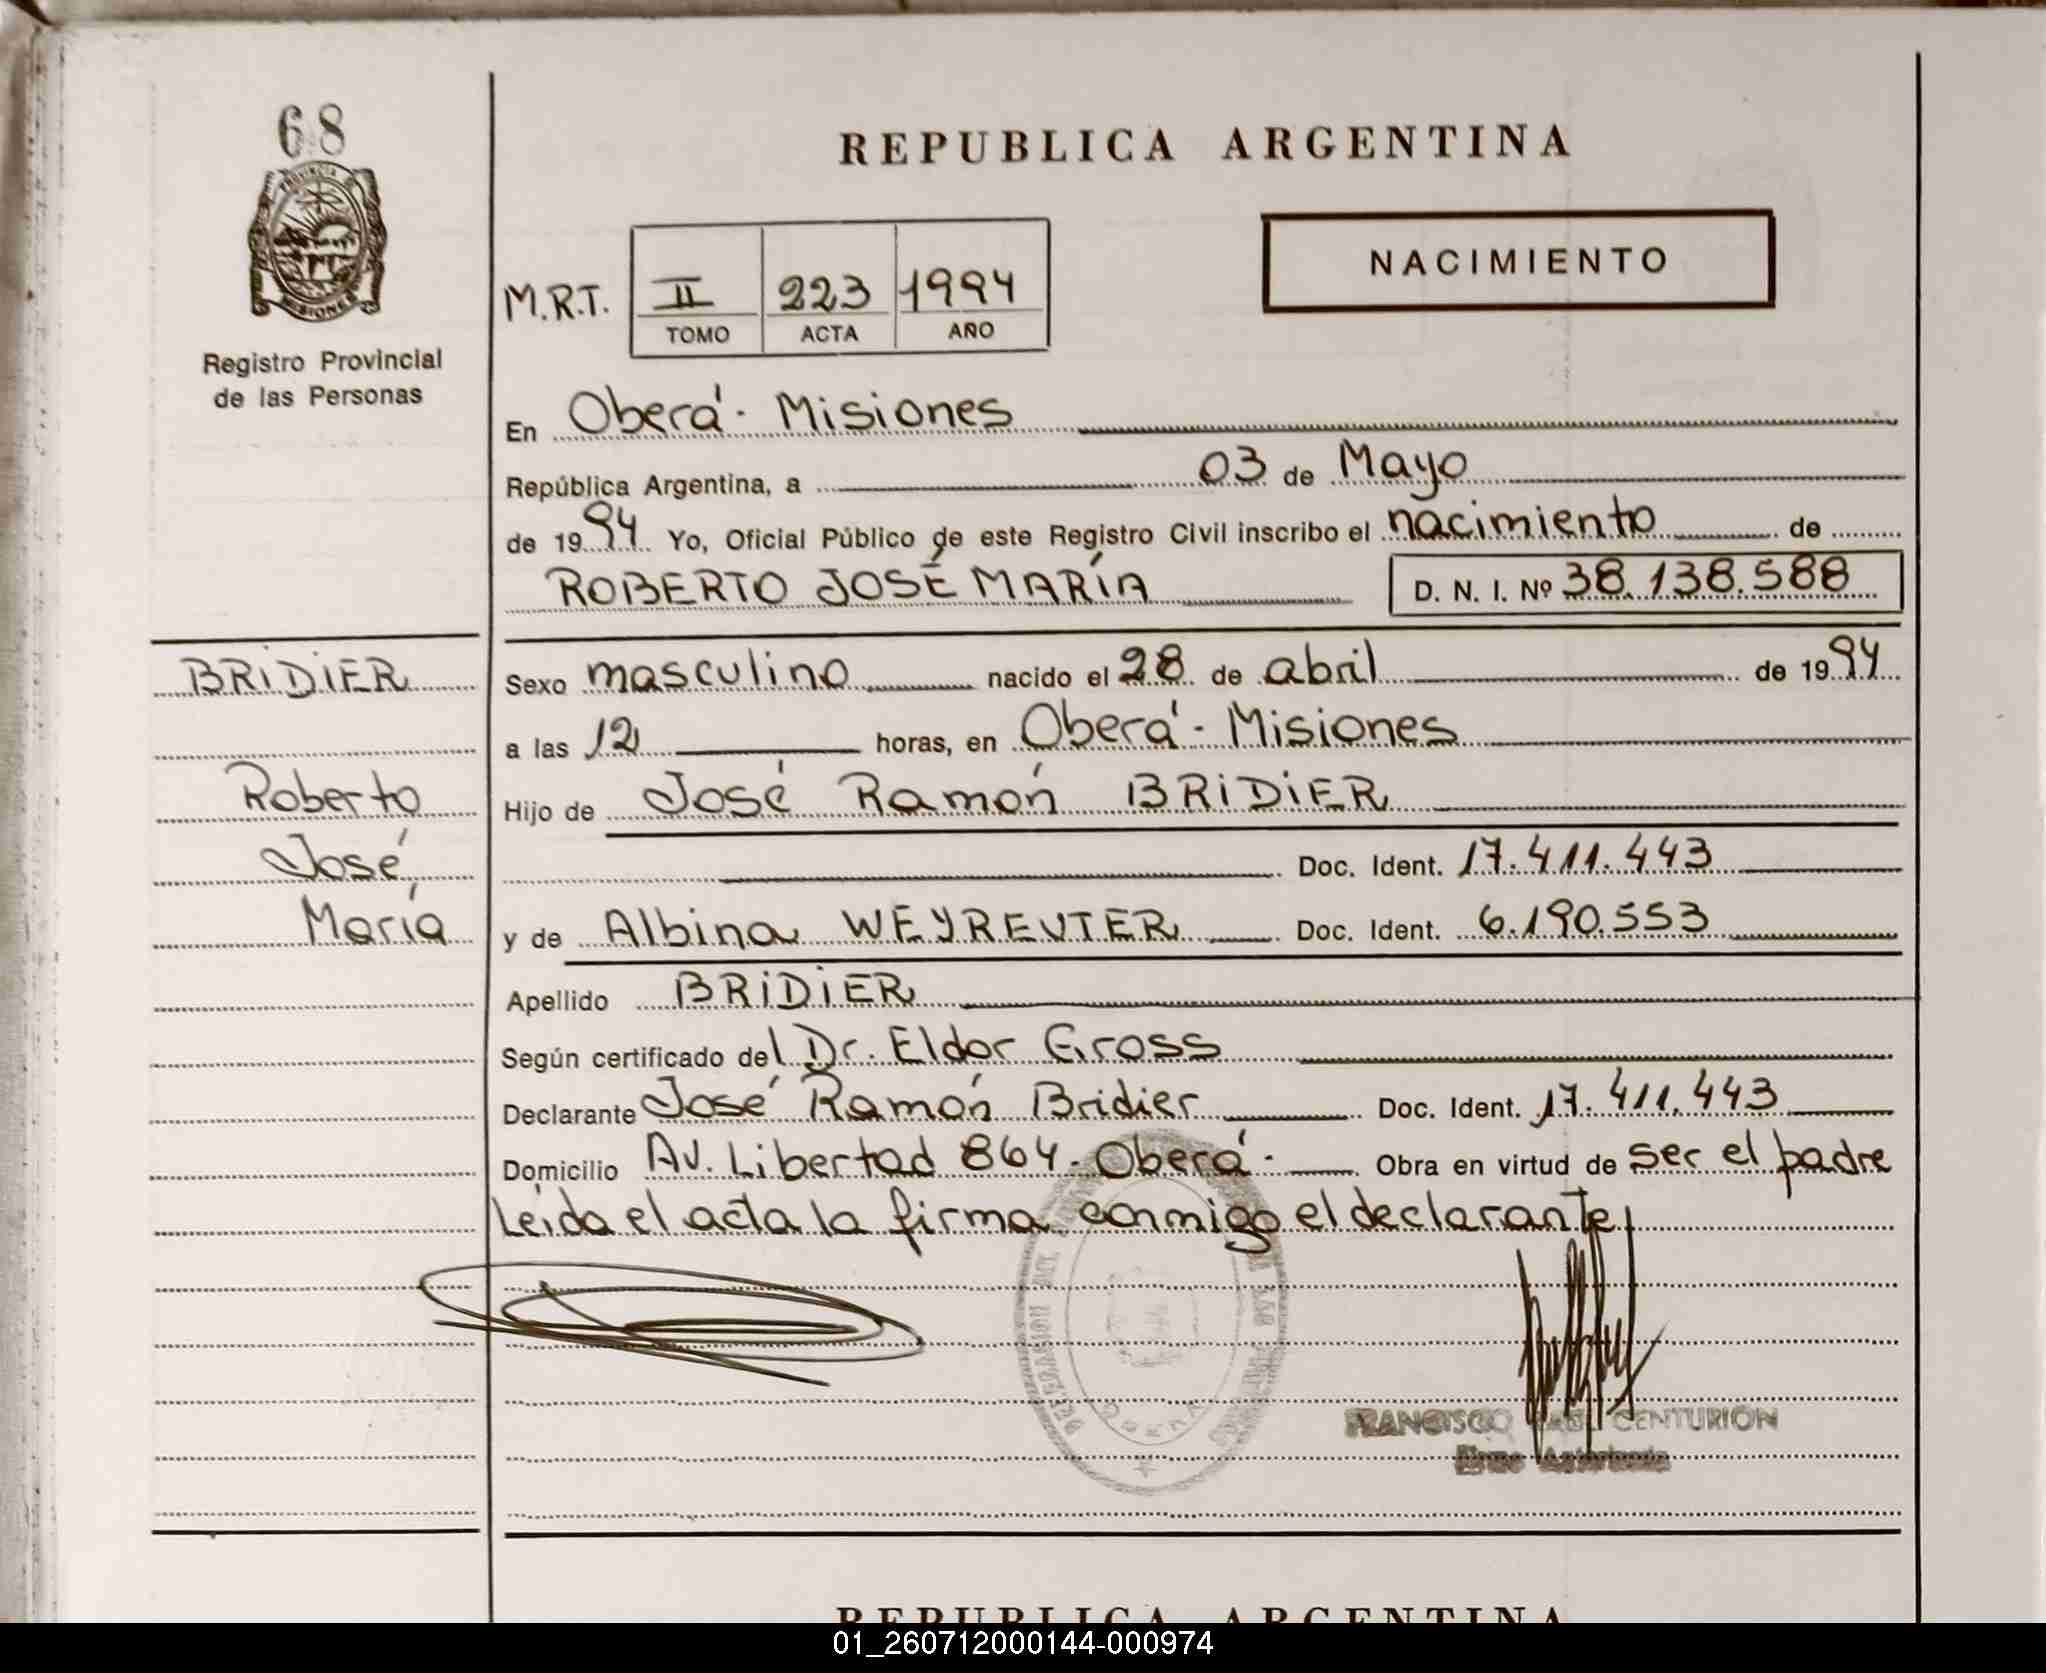 68
PROVINCIA DE
MISIONES
Registro Provincial
de las Personas
REPUBLICA ARGENTINA
NACIMIENTO
M.R.T. II 223 1994
TOMO ACTA AÑO
En Oberá - Misiones
República Argentina, a 03 de Mayo
de 1994 Yo, Oficial Público de este Registro Civil inscribo el nacimiento de
ROBERTO JOSÉ MARÍA D. N. I. Nº 38.138.588
BRIDIER
Roberto
José
María
Sexo masculino nacido el 28 de abril de 1994
a las 12 horas, en Oberá - Misiones
Hijo de José Ramón BRIDIER
Doc. Ident. 17.411.443
y de Albina WEYREUTER Doc. Ident. 6.190.553
Apellido BRIDIER
Según certificado del Dr. Eldor Gross
Declarante José Ramón Bridier Doc. Ident. 17.411.443
Domicilio Av. Libertad 864 - Oberá - Obra en virtud de ser el padre
Leída el acta la firma conmigo el declarante
OBERA
FRANCISCO CENTURION
REPUBLICA ARGENTINA
01_260712000144-000974